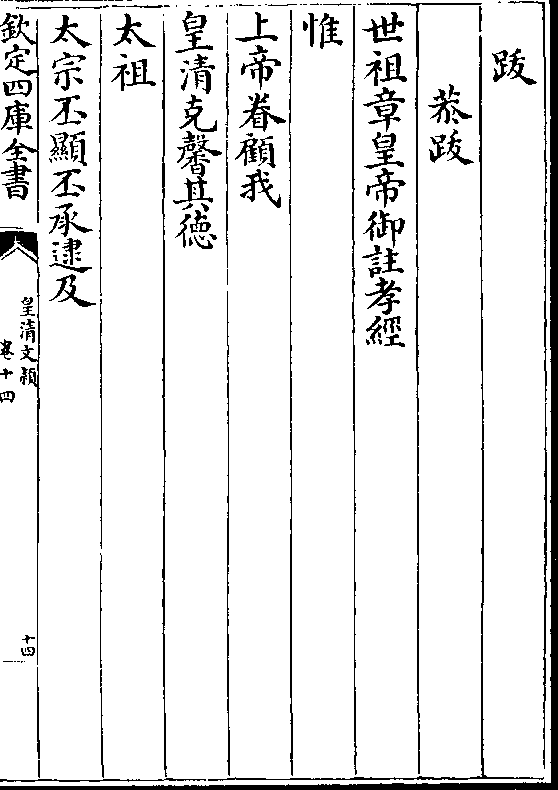 跋
恭跋
世祖章皇帝御註孝經
惟
上帝眷顧我
皇清克馨其德
太祖
太宗丕顯丕承逮及
欽定四庫全書
皇清文穎
卷十四
十四